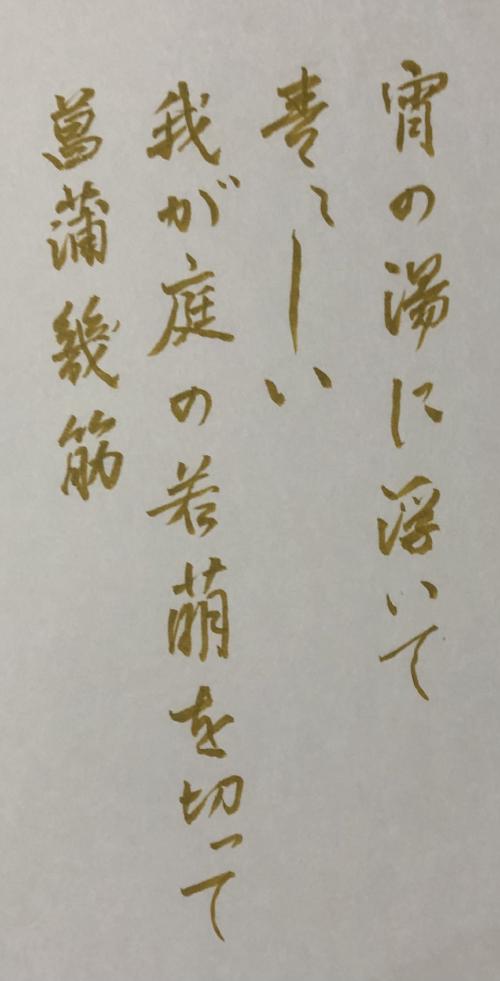 宵の湯に浮いて
青〻しい
我が庭の若萌を切って
菖蒲幾筋